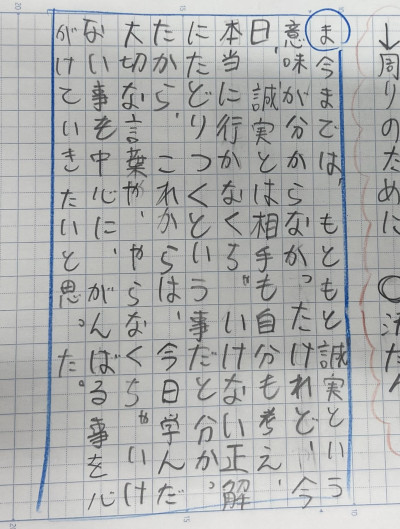 ↓周りのために
ま 今までは、もともと誠実という
意味が分からなかったけれど、今
日、誠実とは相手も自分も考え、
本当に行かなくちゃいけない正解
にたどりつくという事だと分かっ
たから、これからは、今日学んだ
大切な言葉や、やらなくちゃいけ
ない事を中心に、がんばる事を心
がけていきたいと思った。